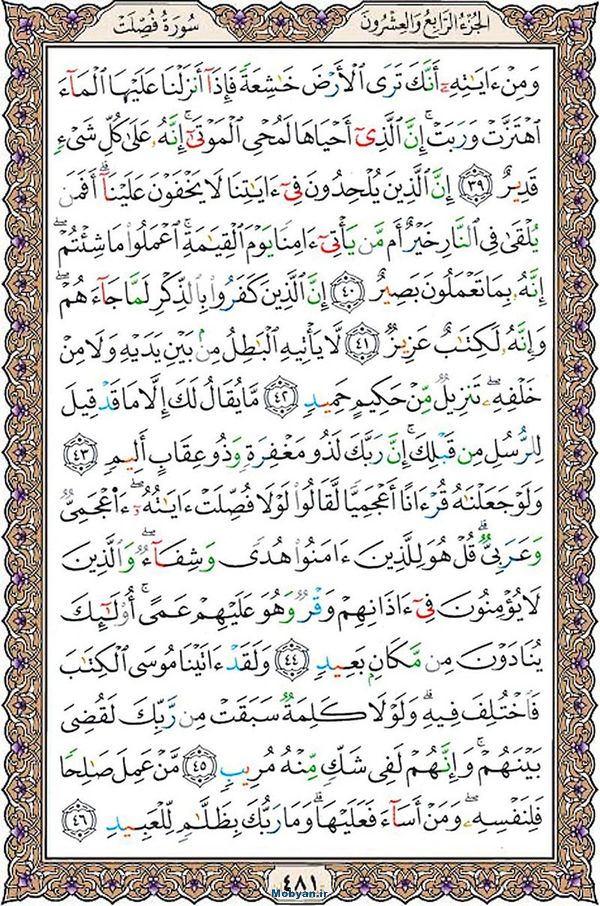 سُورَةُ فُصِّلَتْ
الجُزءُ الرَّابِعُ وَالعِشْرُونَ
وَمِنْ ءَايَٰتِهِۦٓ أَنَّكَ تَرَى ٱلْأَرْضَ خَٰشِعَةً فَإِذَآ أَنزَلْنَا عَلَيْهَا ٱلْمَآءَ
ٱهْتَزَّتْ وَرَبَتْ ۚ إِنَّ ٱلَّذِىٓ أَحْيَاهَا لَمُحْىِ ٱلْمَوْتَىٰٓ ۚ إِنَّهُۥ عَلَىٰ كُلِّ شَىْءٍ
قَدِيرٌ ٣٩ إِنَّ ٱلَّذِينَ يُلْحِدُونَ فِىٓ ءَايَٰتِنَا لَا يَخْفَوْنَ عَلَيْنَآ ۗ أَفَمَن
يُلْقَىٰ فِى ٱلنَّارِ خَيْرٌ أَم مَّن يَأْتِىٓ ءَامِنًا يَوْمَ ٱلْقِيَٰمَةِ ۚ ٱعْمَلُوا۟ مَا شِئْتُمْ ۖ
إِنَّهُۥ بِمَا تَعْمَلُونَ بَصِيرٌ ٤٠ إِنَّ ٱلَّذِينَ كَفَرُوا۟ بِٱلذِّكْرِ لَمَّا جَآءَهُمْ ۖ
وَإِنَّهُۥ لَكِتَٰبٌ عَزِيزٌ ٤١ لَّا يَأْتِيهِ ٱلْبَٰطِلُ مِنۢ بَيْنِ يَدَيْهِ وَلَا مِنْ
خَلْفِهِۦ ۖ تَنزِيلٌ مِّنْ حَكِيمٍ حَمِيدٍ ٤٢ مَّا يُقَالُ لَكَ إِلَّا مَا قَدْ قِيلَ
لِلرُّسُلِ مِن قَبْلِكَ ۚ إِنَّ رَبَّكَ لَذُو مَغْفِرَةٍ وَذُو عِقَابٍ أَلِيمٍ ٤٣
وَلَوْ جَعَلْنَٰهُ قُرْءَانًا أَعْجَمِيًّا لَّقَالُوا۟ لَوْلَا فُصِّلَتْ ءَايَٰتُهُۥٓ ۖ ءَا۬عْجَمِىٌّ
وَعَرَبِىٌّ ۗ قُلْ هُوَ لِلَّذِينَ ءَامَنُوا۟ هُدًى وَشِفَآءٌ ۖ وَٱلَّذِينَ
لَا يُؤْمِنُونَ فِىٓ ءَاذَانِهِمْ وَقْرٌ وَهُوَ عَلَيْهِمْ عَمًى ۚ أُو۟لَٰٓئِكَ
يُنَادَوْنَ مِن مَّكَانٍۭ بَعِيدٍ ٤٤ وَلَقَدْ ءَاتَيْنَا مُوسَى ٱلْكِتَٰبَ
فَٱخْتُلِفَ فِيهِ ۗ وَلَوْلَا كَلِمَةٌ سَبَقَتْ مِن رَّبِّكَ لَقُضِىَ
بَيْنَهُمْ ۚ وَإِنَّهُمْ لَفِى شَكٍّ مِّنْهُ مُرِيبٍ ٤٥ مَّنْ عَمِلَ صَٰلِحًا
فَلِنَفْسِهِۦ ۖ وَمَنْ أَسَآءَ فَعَلَيْهَا ۗ وَمَا رَبُّكَ بِظَلَّٰمٍ لِّلْعَبِيدِ ٤٦
٤٨١
Mobyan.ir